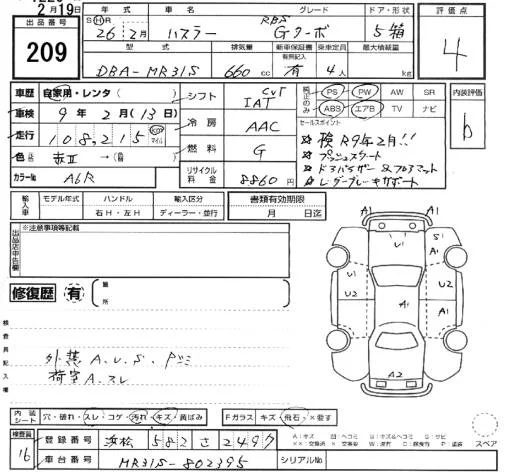 2月19日
出品番号 209
年式 SHR 26年 2月
車名 ハスラー
グレード RBS Gターボ
ドア・形状 5 箱
評価点 4
型式 DBA-MR31S
排気量 660 cc
新車保証書 有無記入 有
乗車定員 4 人
最大積載量 kg
車歴 自家用・レンタ( )
シフト CVT IAT
純正のみ PS PW AW SR
ABS エアB TV ナビ
内装評価 b
車検 9年 2月(13日)
冷房 AAC
セールスポイント
☆ 検 R9年2月!!
走行 108,215 km マイル
☆ プッシュスタート
色 赤Ⅱ →( )
燃料 G
☆ ドアバイザー & フロアマット
カラーNo. A6R
リサイクル料金 8860円
☆ レーダーブレーキサポート
輸入車 モデル年式 ハンドル 右H・左H
輸入区分 ディーラー・並行
書類有効期限 月 日迄
出品店申告欄 ※注意事項等記載
A1 A1
U1 S1
U2 A1 U2
A1
A2
修復歴 有 箇所
検査員記入欄
外装 A.U.S.ドミ
荷室A.スレ
内装シート 穴・破れ・スレ・コゲ・汚れ・キズ・黄ばみ
Fガラス キズ・飛石・×要す
スペア
検査員 16
登録番号 浜松 582 さ 2497
車台番号 MR31S-802395
シリアルNo.